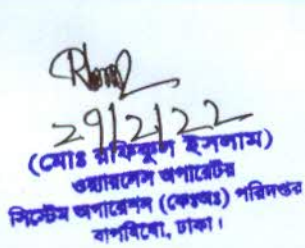 29/2/22
(মোঃ রফিকুল ইসলাম)
ওয়্যারলেস অপারেটর
সিস্টেম অপারেশন (কেঃঅঃ) পরিদপ্তর
বাপবিবো, ঢাকা।